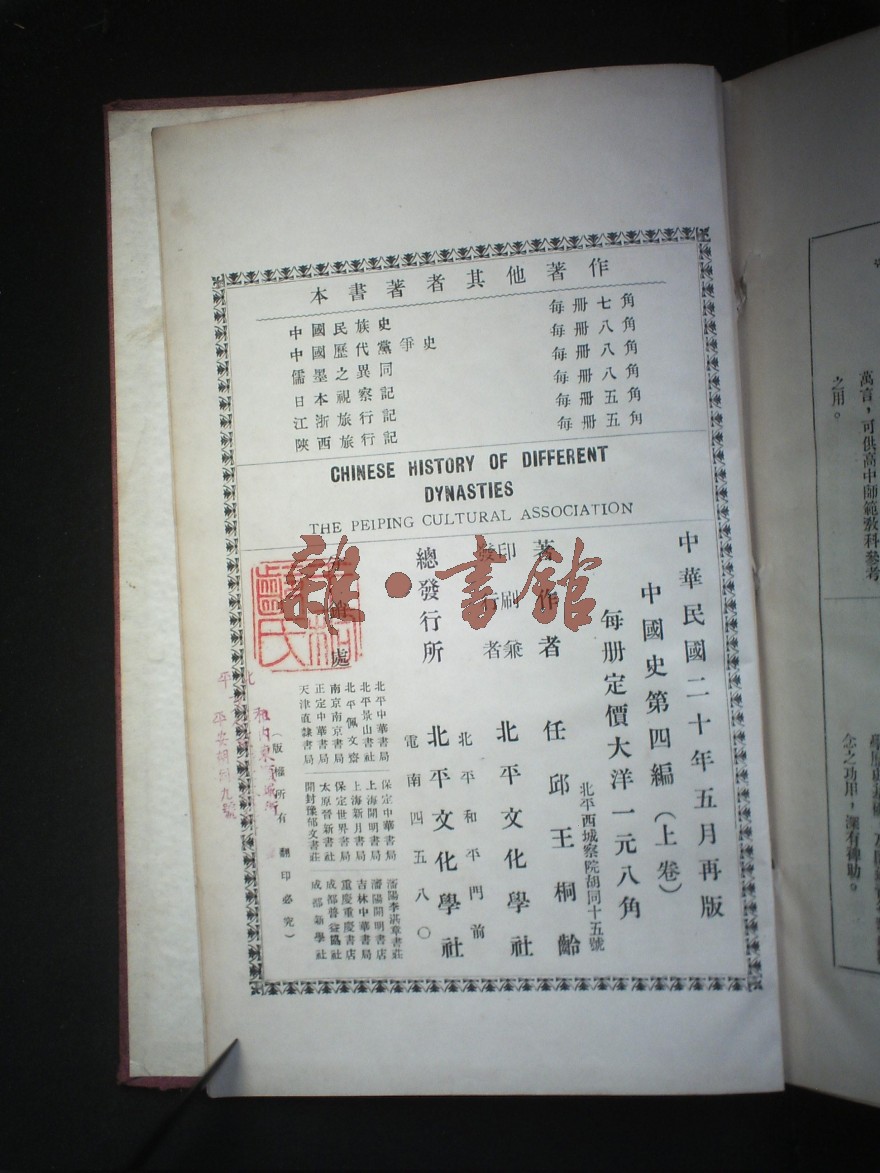 本書著者其他著作
中國民族史 每册七角
中國歷代黨爭史 每册八角
儒墨之異同 每册八角
日本視察記 每册八角
江浙旅行記 每册五角
陝西旅行記 每册五角
CHINESE HISTORY OF DIFFERENT
DYNASTIES
THE PEIPING CULTURAL ASSOCIATION
中華民國二十年五月再版
中國史第四編（上卷）
每册定價大洋一元八角
北平西城察院胡同十五號
著作者 任邱王桐齡
印刷兼
發行者 北平文化學社
北平和平門前
總發行所 北平文化學社
電南四五八〇
處
北平中華書局
北平景山書社
北平佩文齋
南京南京書局
正定中華書局
天津直隸書局
保定中華書局
上海開明書局
上海新月書局
保定世界書局
太原晉新書社
開封豫郁文書莊
瀋陽李湛章書莊
瀋陽開明書店
吉林中華書局
重慶重慶書店
成都普益協社
成都新學社
（版權所有 翻印必究）
雜·書館
平安胡同九號
萬言，可供高中師範教科參考
之用。
念之功用，深有裨助。